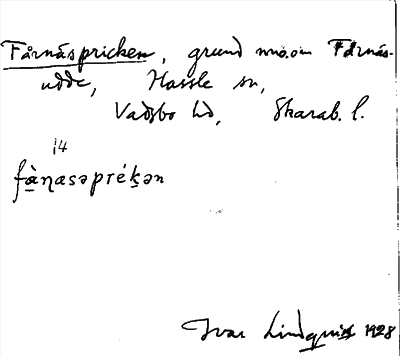 Fårnäspricken, grund nnö.om Fårnäs-
udde, Hassle sn,
Vadsbo hd, Skarab. l.
14
fàɳasəpréḵən
Ivar Lindquist 1928